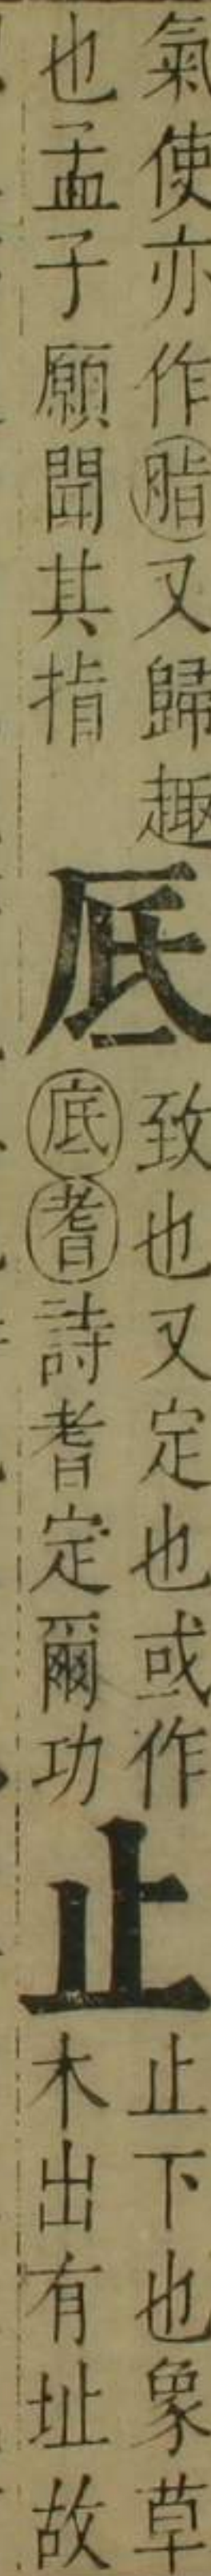 氣使亦作䐈又歸趣
也孟子願聞其指
厎
致也又定也或作
底耆詩耆定爾功
止
止下也象草
木出有址故